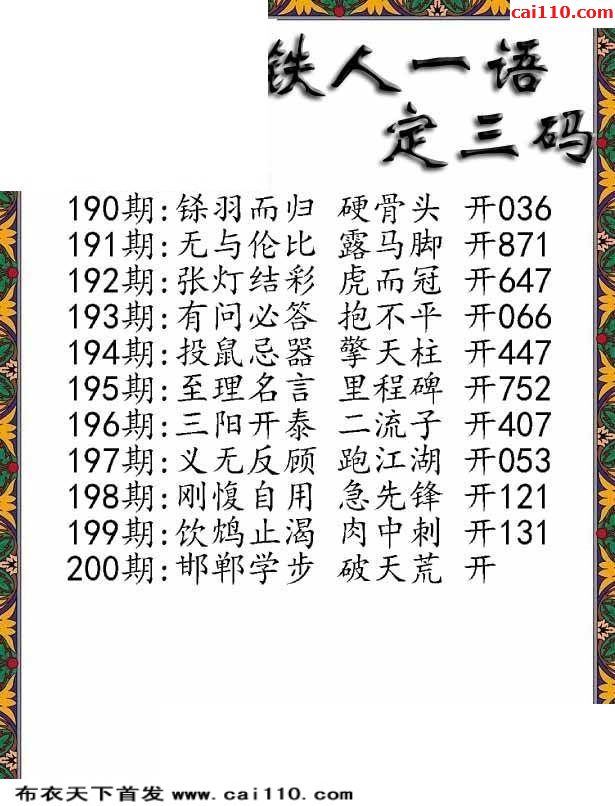 cai110.com
铁人一语
定三码
190期:铩羽而归 硬骨头 开036
191期:无与伦比 露马脚 开871
192期:张灯结彩 虎而冠 开647
193期:有问必答 抱不平 开066
194期:投鼠忌器 擎天柱 开447
195期:至理名言 里程碑 开752
196期:三阳开泰 二流子 开407
197期:义无反顾 跑江湖 开053
198期:刚愎自用 急先锋 开121
199期:饮鸩止渴 肉中刺 开131
200期:邯郸学步 破天荒 开
布衣天下首发 www.cai110.com